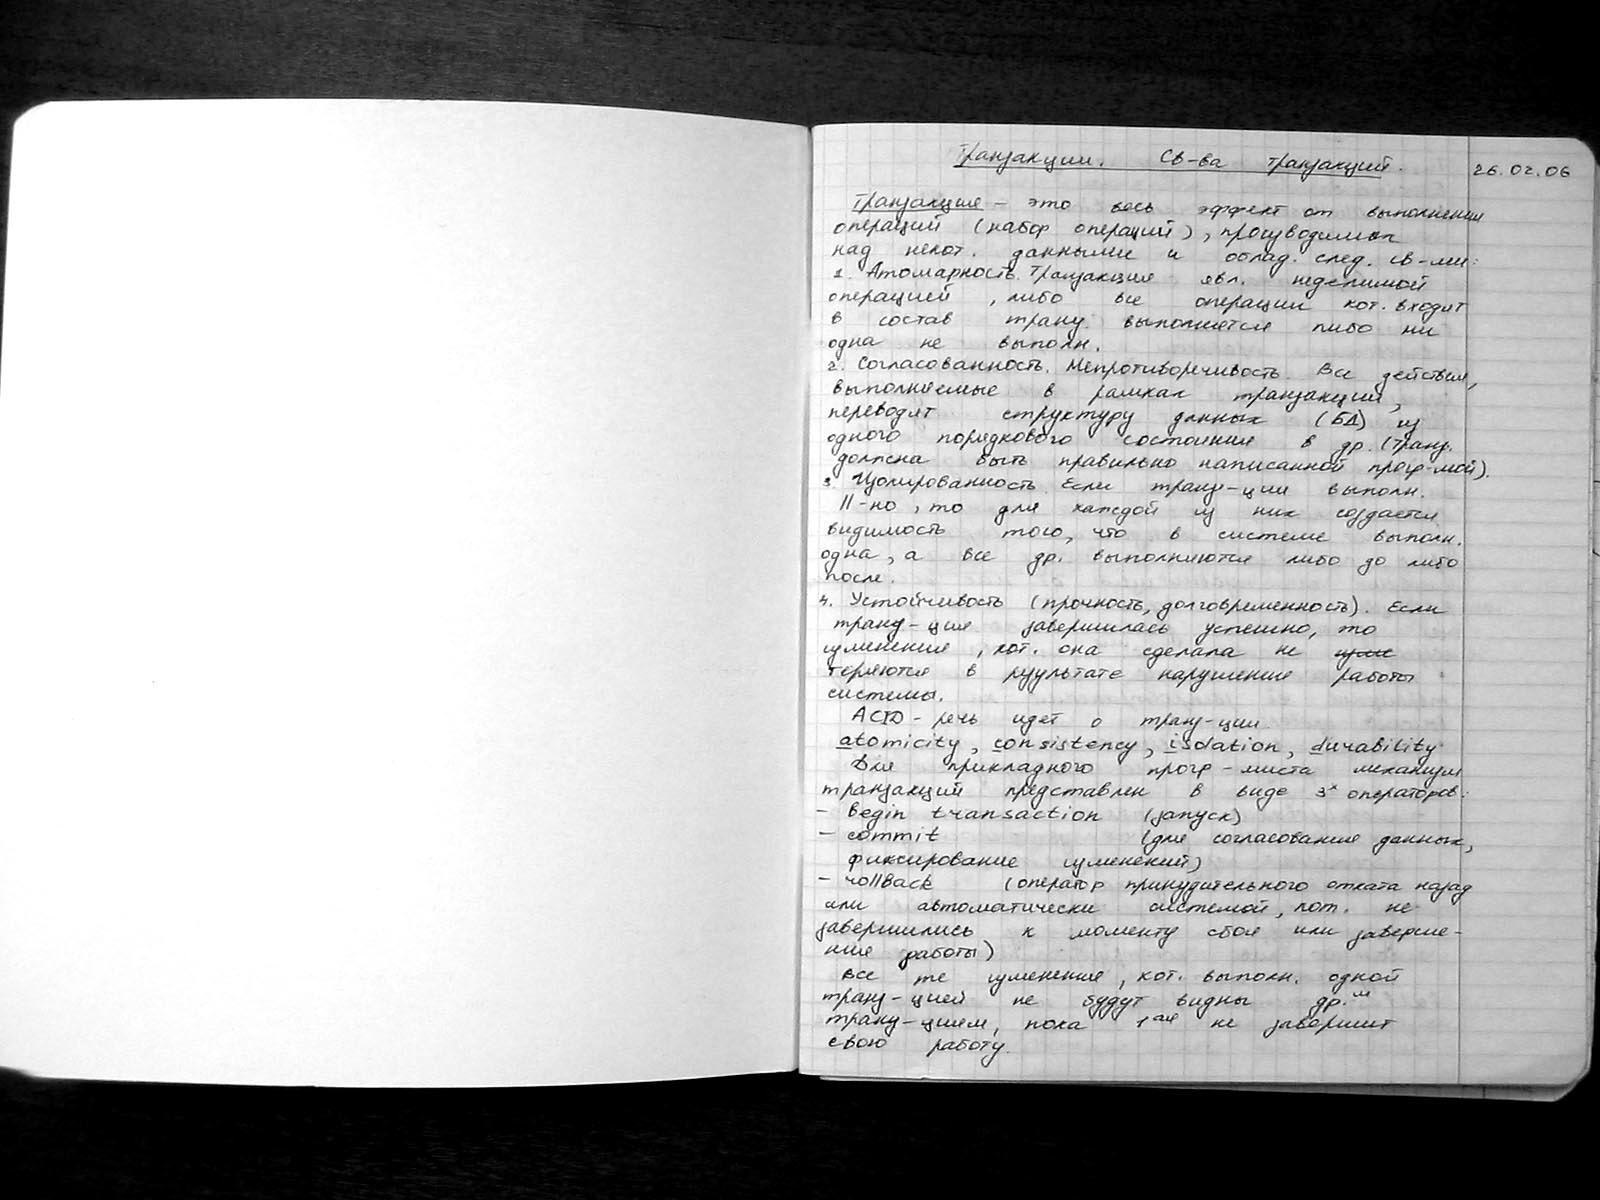 Транзакции. Св-ва транзакций.
26.02.06
Транзакция – это весь эффект от выполнения
операций (набор операций), производимых
над некот. данными и облад. след. св-ми:
1. Атомарность. Транзакция явл. неделимой
операцией, либо все операции кот. входят
в состав транз. выполняется либо ни
одна не выполн.
2. Согласованность. Непротиворечивость. Все действия,
выполняемые в рамках транзакции,
переводят структуру данных (БД) из
одного порядкового состояния в др. (транз.
должна быть правильно написанной прогр-мой).
3. Изолированность. Если транз-ции выполн.
||-но, то для каждой из них создается
видимость того, что в системе выполн.
одна, а все др. выполняются либо до либо
после.
4. Устойчивость (прочность, долговременность). Если
транз-ция завершилась успешно, то
изменения, кот. она сделала не
теряются в результате нарушения работы
системы.
ACID - речь идет о транз-ции
atomicity, consistency, isolation, durability
Для прикладного прогр-миста механизм
транзакций представлен в виде 3х операторов:
– begin transaction (запуск)
– commit (для согласования данных,
фиксирование изменений)
– rollback (оператор принудительного отката назад
или автоматически системой, кот. не
завершились к моменту сбоя или заверше-
ния работы)
Все те изменения, кот. выполн. одной
транз-цией не будут видны др.м
транз-циям, пока 1ая не завершит
свою работу.